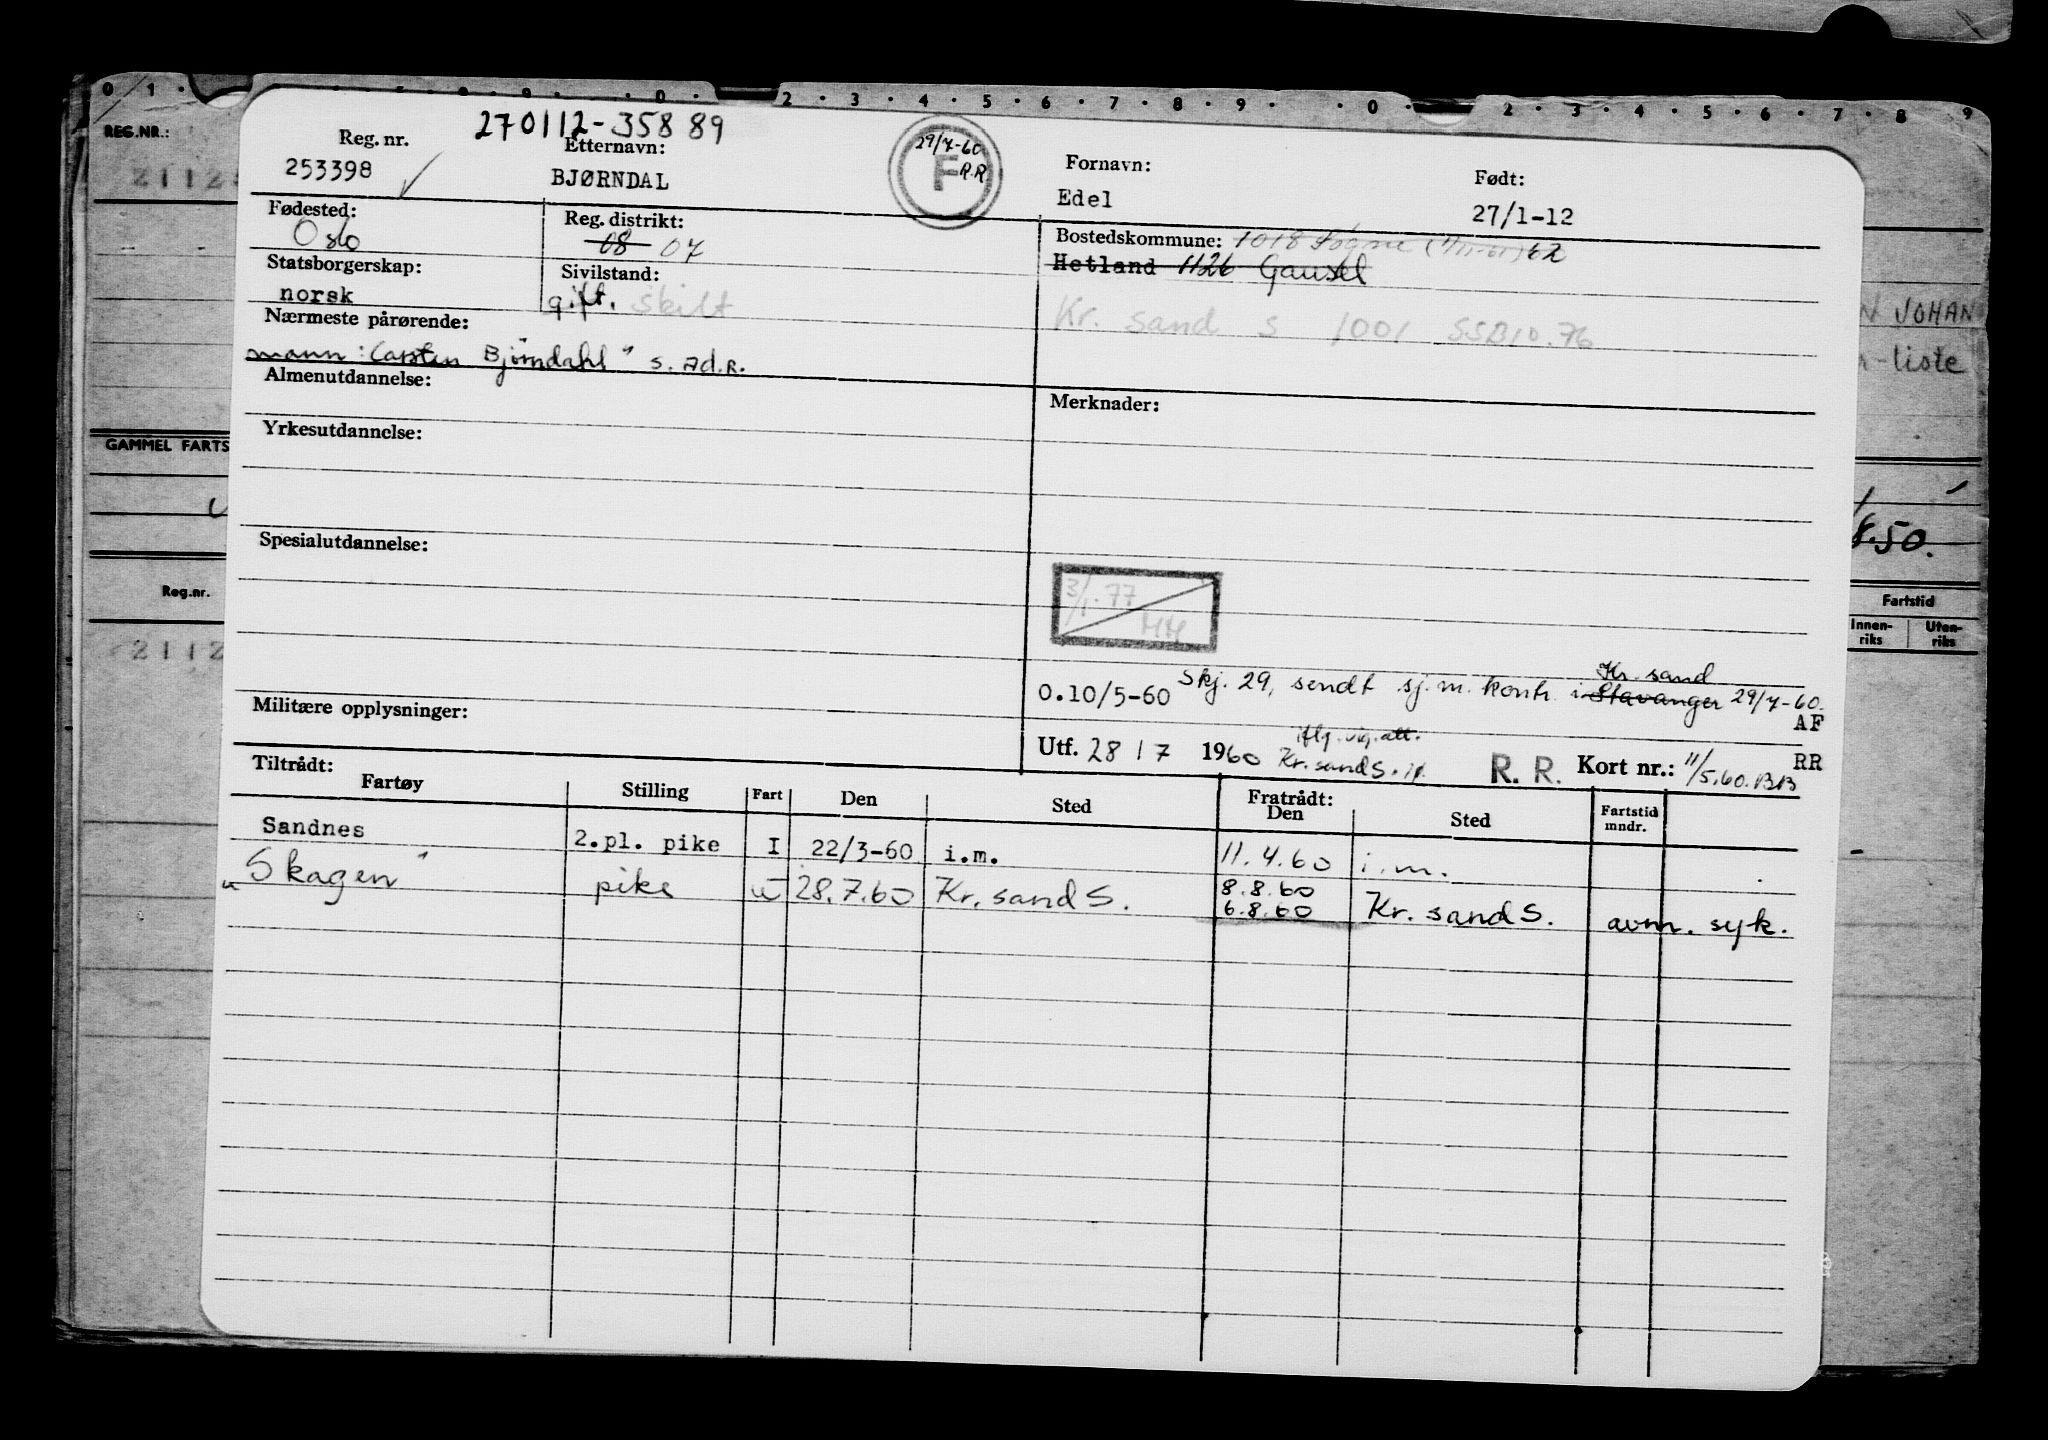 0 1 2 3 4 5 6 7 8 9 0 2 3 4 5 6 7 8 9
REG.NR.:
2112
JOHAN
liste
GAMMEL FARTS
8.50.
Reg.nr.
Fartstid
Innen-riks Uten-riks
2112
270112-35889
Reg. nr. Etternavn: Fornavn: Født:
253398 BJØRNDAL Edel 27/1-12
29/7-60
F R.R
Fødested: Reg. distrikt: Bostedskommune: 1018 Søgne 62
Oslo 08 07 Hetland 1126 Gausel
Statsborgerskap: Sivilstand:
norsk gift. skilt Kr. sand S 1001 SSB10.76
Nærmeste pårørende:
mann: Carsten Bjørndahl s. ad.R.
Almenutdannelse: Merknader:
Yrkesutdannelse:
Spesialutdannelse:
3/1.77
HH
Kr. sand
0.10/5-60 Skj. 29, sendt sj.m. kontr. i Stavanger 29/7-60.
AF
Militære opplysninger:
iflg. vig. att.
Utf. 28/7 1960 Kr.sand S. R. R. Kort nr.: 11/5.60. BB RR
Tiltrådt: Fratrådt:
Fartøy Stilling Fart Den Sted Den Sted Fartstid mndr.
Sandnes 2.pl. pike I 22/3-60 i.m. 11.4.60 i.m. -
"Skagen" pike u 28.7.60 Kr. sand S. 8.8.60 6.8.60 Kr. sand S. avm. syk.